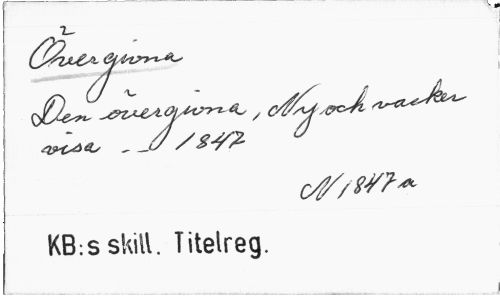 2
Övergivna
Den övergivna, Ny och vacker
visa -- 1847
N 1847 a
KB:s skill. Titelreg.